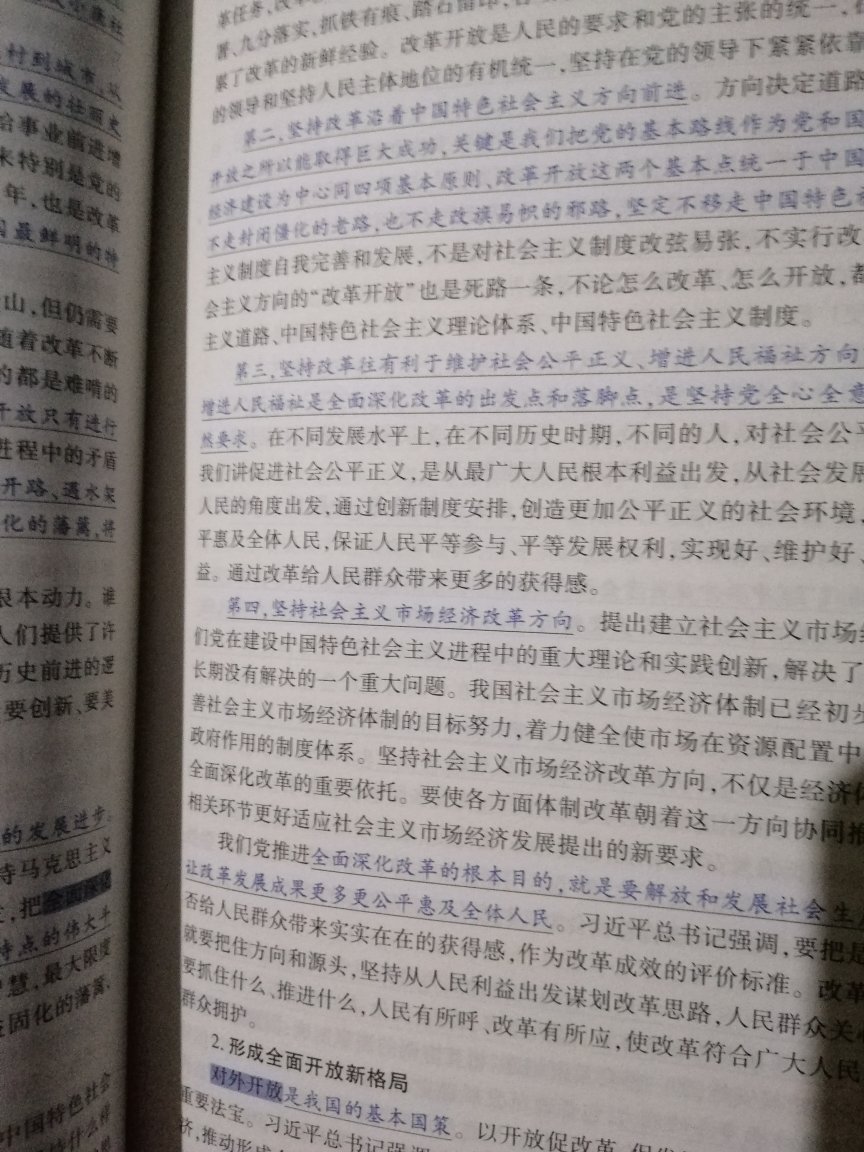 村到城市,从
发展的壮丽史
事业前进增
来特别是党的
年,也是改革
最鲜明的特
山,但仍需要
随着改革不断
的都是难啃的
开放只有进行
进程中的矛盾
开路、遇水架
化的藩篱,将
根本动力。谁
人们提供了许
历史前进的逻
要创新、要美
的发展进步。
持马克思主义
,把全面深化
特点的伟大斗
智慧,最大限度
固化的藩篱,
中国特色社会
革任务,改革
署、九分落实,抓铁有痕、踏石留印,
累了改革的新鲜经验。改革开放是人民的要求和党的主张的统一,
的领导和坚持人民主体地位的有机统一,坚持在党的领导下紧紧依靠
第二,坚持改革沿着中国特色社会主义方向前进。方向决定道路
开放之所以能取得巨大成功,关键是我们把党的基本路线作为党和国
经济建设为中心同四项基本原则、改革开放这两个基本点统一于中国
不走封闭僵化的老路,也不走改旗易帜的邪路,坚定不移走中国特色社
主义制度自我完善和发展,不是对社会主义制度改弦易张,不实行改
会主义方向的“改革开放”也是死路一条,不论怎么改革、怎么开放,都
主义道路、中国特色社会主义理论体系、中国特色社会主义制度。
第三,坚持改革往有利于维护社会公平正义、增进人民福祉方向
增进人民福祉是全面深化改革的出发点和落脚点,是坚持党全心全意
然要求。在不同发展水平上,在不同历史时期,不同的人,对社会公平
我们讲促进社会公平正义,是从最广大人民根本利益出发,从社会发展
人民的角度出发,通过创新制度安排,创造更加公平正义的社会环境,
平惠及全体人民,保证人民平等参与、平等发展权利,实现好、维护好、
益。通过改革给人民群众带来更多的获得感。
第四,坚持社会主义市场经济改革方向。提出建立社会主义市场经
们党在建设中国特色社会主义进程中的重大理论和实践创新,解决了
长期没有解决的一个重大问题。我国社会主义市场经济体制已经初步
善社会主义市场经济体制的目标努力,着力健全使市场在资源配置中
政府作用的制度体系。坚持社会主义市场经济改革方向,不仅是经济体
全面深化改革的重要依托。要使各方面体制改革朝着这一方向协同推
相关环节更好适应社会主义市场经济发展提出的新要求。
我们党推进全面深化改革的根本目的,就是要解放和发展社会生产
让改革发展成果更多更公平惠及全体人民。习近平总书记强调,要把是
否给人民群众带来实实在在的获得感,作为改革成效的评价标准。改革
就要把住方向和源头,坚持从人民利益出发谋划改革思路,人民群众关心
要抓住什么、推进什么,人民有所呼、改革有所应,使改革符合广大人民
群众拥护。
2.形成全面开放新格局
对外开放是我国的基本国策。以开放促改革
重要法宝。习近平总书记强调
济,推动形成